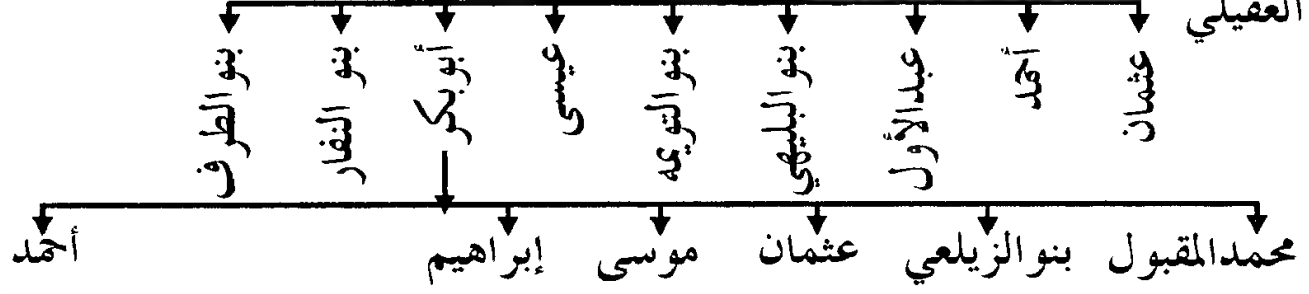 العقيلي
عثمان
أحمد
عبدالأول
بنو البليهي
بنو التويمه
عيسى
أبو بكر
بنو النفار
بنو الطرف
محمد المقبول
بنو الزيلعي
عثمان
موسى
إبراهيم
أحمد